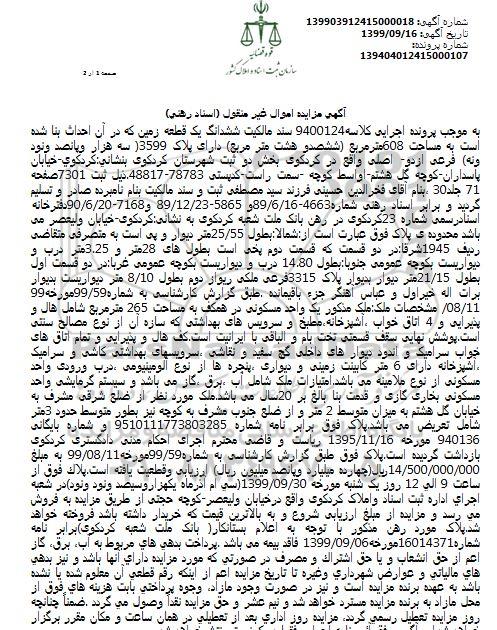 شماره آگهی: 139903912415000018
تاریخ آگهی: 1399/09/16
شماره پرونده:
139404012415000107
قوه قضائیه
سازمان ثبت اسناد و املاک کشور
صفحه 1 از 2
آگهي مزايده اموال غير منقول (اسناد رهني)
به موجب پرونده اجرایی کلاسه9400124 سند مالکیت ششدانگ یک قطعه زمین که در آن احداث بنا شده
است به مساحت 608مترمربع (ششصدو هشت متر مربع) دارای پلاک 3599( سه هزار وپانصد ونود
ونه) فرعی ازدو- اصلی واقع در کردکوی بخش دو ثبت شهرستان کردکوی بنشانی:کردکوی-خیابان
پاسداران-کوچه گل هشتم-اواسط کوچه -سمت راست-کدپستی 78783-48817.ذیل ثبت 7301صفحه
71 جلد30 .بنام آقای فخرالدین حسینی فرزند سید مصطفی ثبت و سند مالکیت بنام نامبرده صادر و تسلیم
گردید و برابر اسناد رهنی شماره4663-89/6/16و 5865-89/12/23 و7168-90/6/20دفترخانه
اسنادرسمی شماره 23کردکوی در رهن بانک ملت شعبه کردکوی به نشانی:کردکوی-خیابان ولیعصر می
باشد محدوده ی پلاک فوق عبارت است از:شمالا:بطول 25/55متر دیوار و پی است به متصرفی متقاضی
ردیف 1945شرقا:در دو قسمت که قسمت دوم پخی است بطول های 28متر و 3.25متر درب و
دیواریست بکوچه عمومی جنوبا:بطول 14.80 درب و دیواریست بکوچه عمومی غربا:در دو قسمت اول
بطول 21/15متر دیوار بدیوار پلاک 3315فرعی ملکی ریواز دوم بطول 8/10 متر دیواریست بدیوار
برات اله خیراول و عباس آهنگر جزء باقیمانده .طبق گزارش کارشناسی به شماره99/59مورخه99
/08/11 مشخصات ملک:ملک مذکور یک واحد مسکونی در همکف به مساحت 265 مترمربع شامل هال و
پذیرایی و 4 اتاق خواب ،آشپزخانه،مطبخ و سرویس های بهداشتی که سازه آن از نوع مصالح سنتی
است.پوشش نهایی سقف قسمتی تخت بام و الباقی با ایرانیت است.کف هال و پذیرایی و تمام اتاق های
خواب سرامیک و اندود دیوار های داخلی گچ سفید و نقاشی ،سرویسهای بهداشتی کاشی و سرامیک
،آشپزخانه دارای 6 متر کابینت زمینی و دیواری ،پنجره ها از نوع آلومینیومی ،درب ورودی واحد
مسکونی از نوع ملامینه می باشد.امتیازات ملک شامل آب ،برق ،گاز می باشد و سیستم گرمایشی واحد
مسکونی بخاری گازی و قدمت بنا بالغ بر 20سال می باشد.ملک مورد نظر از ضلع شرق مشرف به
خیابان گل هشتم به میزان متوسط 2 متر و از ضلع جنوب مشرف به کوچه نیز بطور متوسط حدود 3متر
شامل تعریض می باشد.پلاک فوق برابر نامه شماره 9510111773803285 و شماره بایگانی
940136 مورخه 1395/11/16 ریاست و قاضی محترم اجرای احکام مدنی دادگستری کردکوی
بازداشت گردیده است.پلاک فوق طبق گزارش کارشناسی به شماره99/59مورخه99/08/11 به مبلغ
14/500/000/000ریال(چهارده میلیارد وپانصد میلیون ریال) ارزیابی وقطعیت یافته است.پلاک فوق از
ساعت 9 الی 12 روز یک شنبه مورخه 1399/09/30(سی ام آذرماه یکهزاروسیصد ونود ونود)در شعبه
اجرای اداره ثبت اسناد واملاک کردکوی واقع درخیابان ولیعصر-کوچه حجتی از طریق مزایده به فروش
می رسد و مزایده از مبلغ ارزیابی شروع و به بالاترین قیمت که خریدار داشته باشد فروخته خواهد
شد.پلاک مورد رهن مذکور با توجه به اعلام بستانکار( بانک ملت شعبه کردکوی)برابر نامه
شماره16014371مورخه1399/09/06 فاقد بیمه می باشد .پرداخت بدهی های مربوط به آب، برق، گاز
اعم از حق انشعاب و یا حق اشتراک و مصرف در صورتی که مورد مزایده دارای آنها باشد و نیز بدهی
های مالیاتی و عوارض شهرداری وغیره تا تاریخ مزایده اعم از اینکه رقم قطعی آن معلوم شده یا نشده
باشد به عهده برنده مزایده است و نیز در صورت وجود مازاد، وجوه پرداختی بابت هزینه های فوق از
محل مازاد به برنده مزایده مسترد خواهد شد و نیم عشر و حق مزایده نقداً وصول می گردد .ضمناً چنانچه
روز مزایده تعطیل رسمی گردد، مزایده روز اداری بعد از تعطیلی در همان ساعت و مکان مقرر برگزار